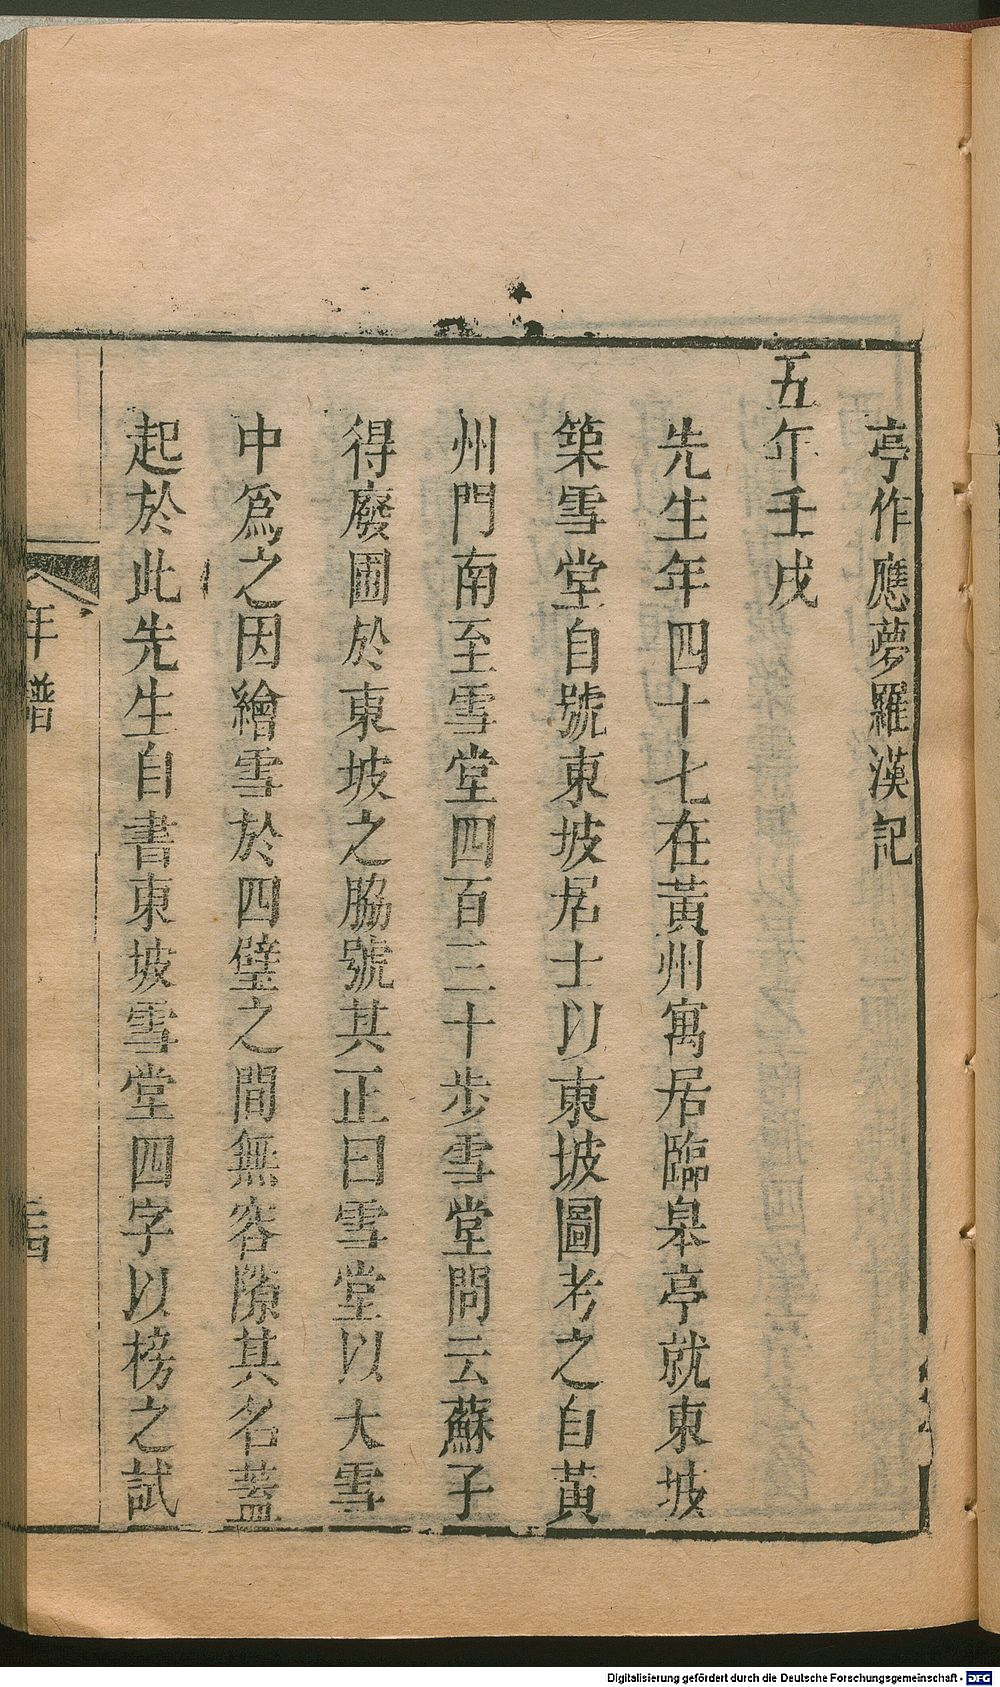 亭作應夢羅漢記
五年壬戌
先生年四十七在黃州寓居臨皋亭就東坡
築雪堂自號東坡居士以東坡圖考之自黃
州門南至雪堂四百三十步雪堂問云蘇子
得廢圃於東坡之脇號其正曰雪堂以大雪
中爲之因繪雪於四壁之間無容隙其名蓋
起於此先生自書東坡雪堂四字以榜之試
年譜
Digitalisierung gefördert durch die Deutsche Forschungsgemeinschaft - DFG